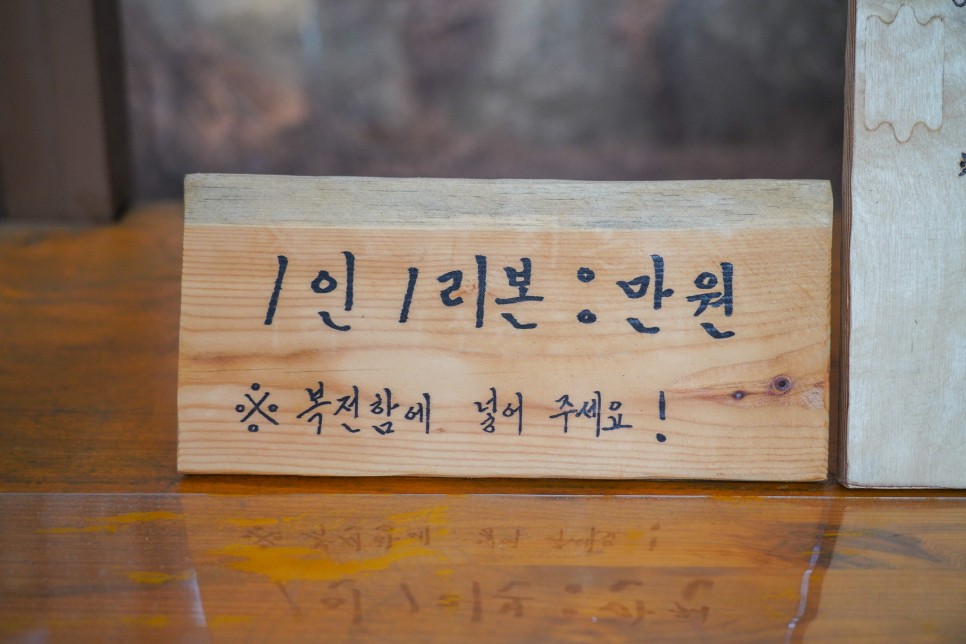 1인 1리본:만원
※ 복전함에 넣어 주세요!